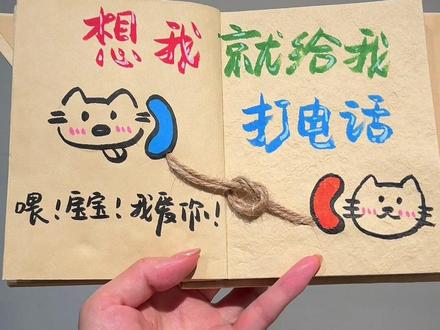 想我就给我
打电话
喂！宝宝！我爱你！